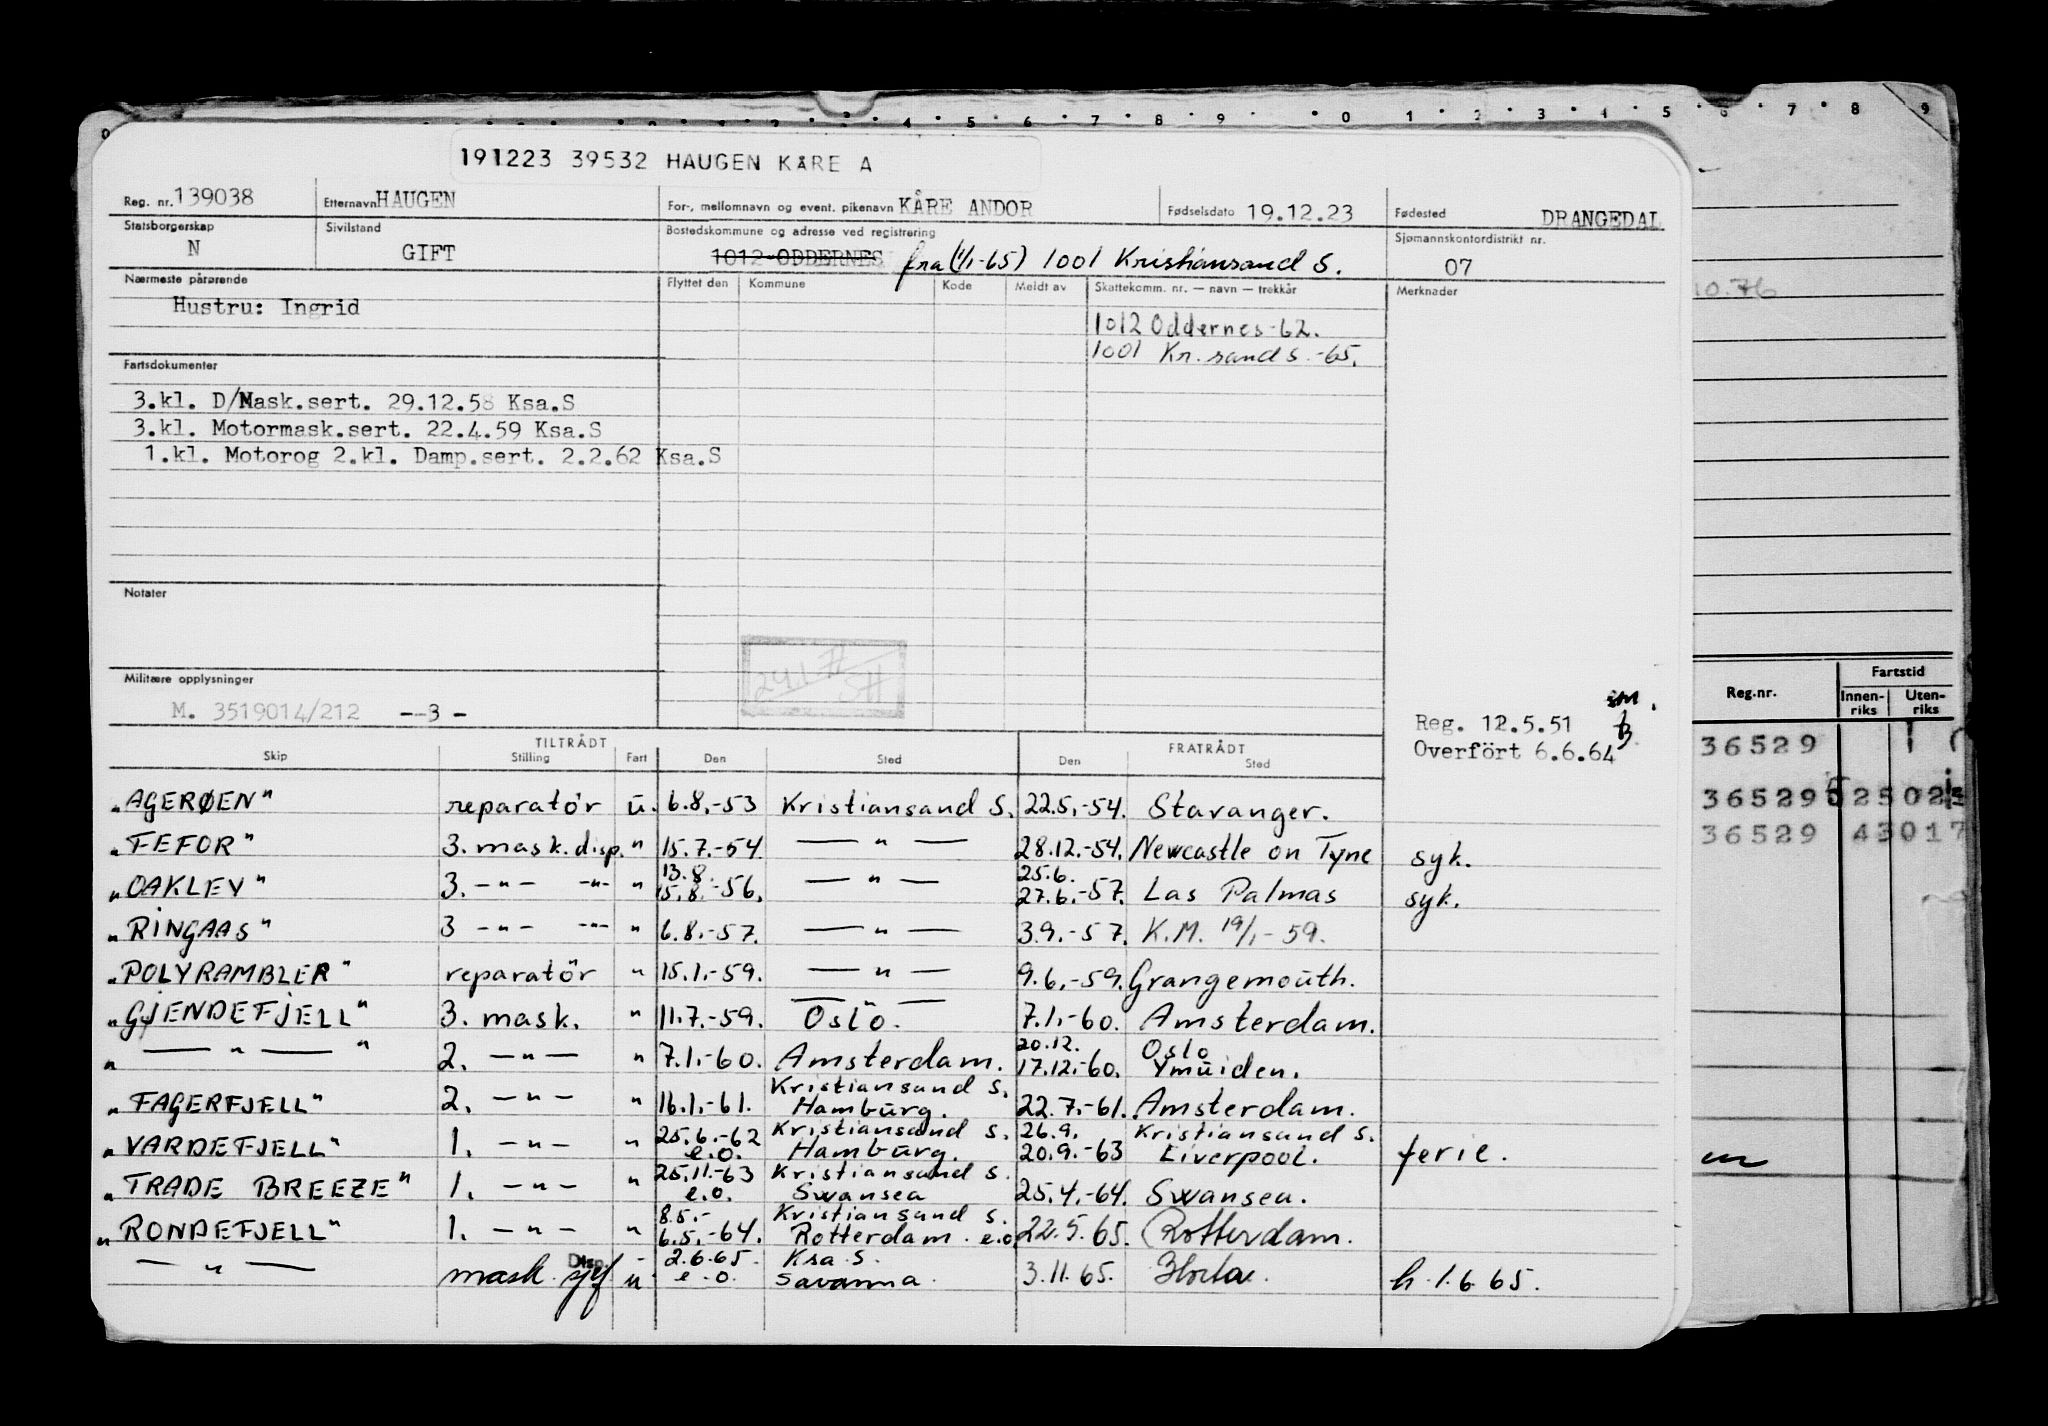 0 4 5 6 7 8 9 0 1 2 3 4 5 6 7 8 9
191223 39532 HAUGEN KÅRE A
Reg. nr. 139038 Etternavn HAUGEN For-, mellomnavn og event. pikenavn KÅRE ANDOR Fødselsdato 19.12.23 Fødested DRANGEDAL
Statsborgerskap N Sivilstand GIFT Bostedskommune og adresse ved registrering 1012 ODDERNES fra (1/1-65) 1001 Kristiansand S. Sjømannskontordistrikt nr. 07
Nærmeste pårørende Flyttet den Kommune Kode Meldt av Skattekomm. nr. — navn — trekkår Merknader
Hustru: Ingrid
1012 Oddernes-62.
1001 Kr.sand S.-65.
10.76
Fartsdokumenter
3.kl. D/Mask.sert. 29.12.58 Ksa.S
3.kl. Motormask.sert. 22.4.59 Ksa.S
1.kl. Motorog 2.kl. Damp.sert. 2.2.62 Ksa.S
Notater
Militære opplysninger
M. 3519014/212 --3 -
Reg. 12.5.51
Overfört 6.6.64
Reg.nr. Fartstid
Innen-riks Uten-riks
36529
36529
36529 43017
TILTRÅDT FRATRÅDT
Skip Stilling Fart Den Sted Den Sted
"AGERØEN" reparatör u. 6.8.-53 Kristiansand S. 22.5.-54. Stavanger.
"FEFOR" 3. mask. disp. " 15.7.-54. — " — 28.12.-54. Newcastle on Tyne syk.
"OAKLEY" 3. -"- -"- " 13.8. 15.8.-56. — " — 25.6. 27.6.-57. Las Palmas syk.
"RINGAAS" 3 -"- -"- " 6.8.-57. — " — 3.9.-57. K.M. 19/1-59.
"POLYRAMBLER" reparatör " 15.1.-59. — " — 9.6.-59. Grangemouth.
"GJENDEFJELL" 3. mask. " 11.7.-59. — " — Oslo. 7.1.-60. Amsterdam.
" — " — " 2. -"- " 7.1.-60. Amsterdam. 20.12. 17.12.-60. Oslo Ymuiden.
"FAGERFJELL" 2. -"- " 16.1.-61. Kristiansand S. Hamburg. 22.7.-61. Amsterdam.
"VARDEFJELL" 1. -"- " 25.6.-62 e.o. Kristiansand S. Hamburg. 26.9. 20.9.-63 Kristiansand S. Liverpool. ferie.
"TRADE BREEZE" 1. -"- " 25.11.-63 e.o. Kristiansand S. Swansea 25.4.-64. Swansea.
"RONDEFJELL" 1. -"- " 8.5.- 6.5.-64. Kristiansand S. Rotterdam. e.o. 22.5.65. Rotterdam.
— " — mask. sjef Disp. u 2.6.65. e.o. Ksa S. Savanna. 3.11.65. h. 1.6.65.